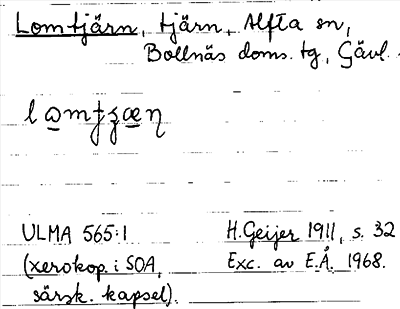 Lomtjärn, tjärn, Alfta sn,
Bollnäs doms. tg, Gävl.
ULMA 565:1
(xerokop. i SOA,
särsk. kapsel).
H. Geijer 1911, s. 32
Exc. av E.Å. 1968.